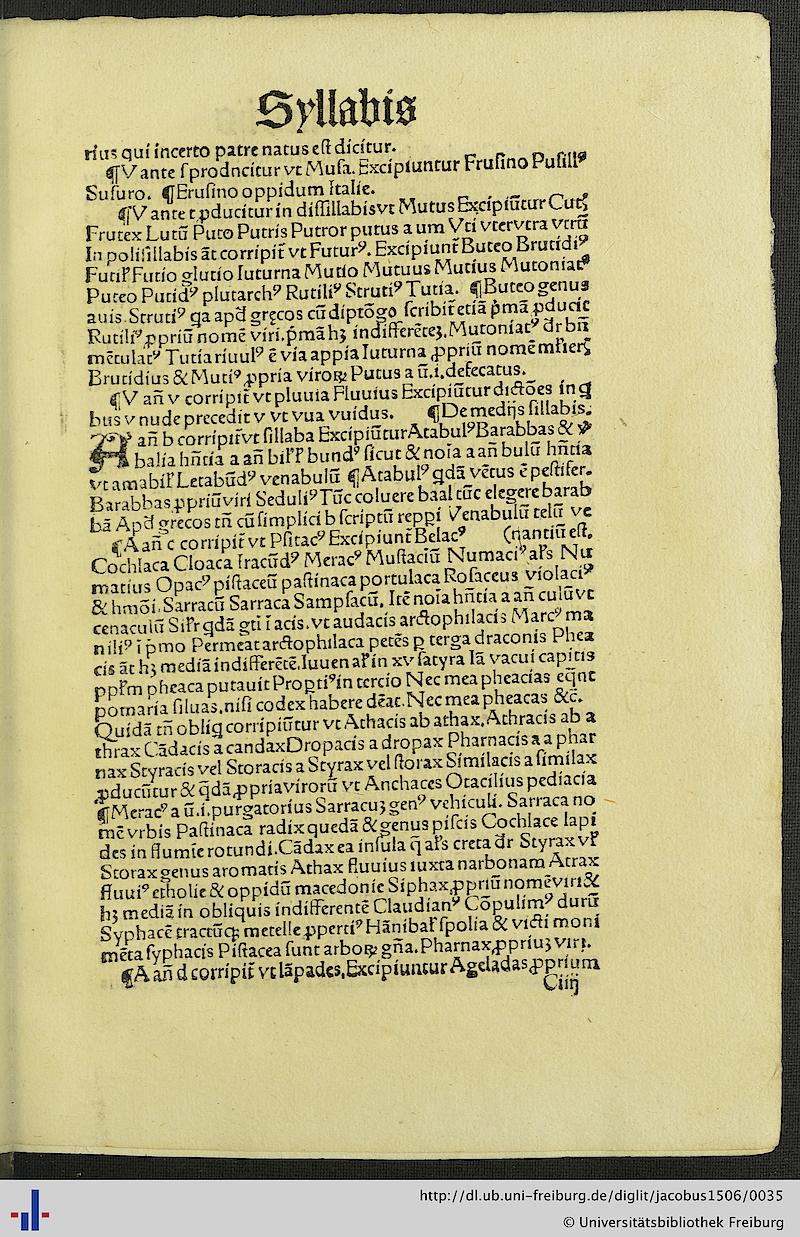 Syllabis
rius qui incerto patre natus eſt dicitur.
¶V ante ſ prodncitur vt Muſa. Excipiuntur Fruſino Puſillꝰ
Suſuro. ¶Eruſino oppidum Italie.
¶V ante t ꝓducitur in diſſillabis vt Mutus Excipiūtur Cutꝫ
Frutex Lutū Puto Putris Putror putus a um Vti vter vtra vtrū
In poliſillabis āt corripit̄ vt Futurꝰ. Excipiunt̄ Buteo Brutidiꝰ
Futiƚr Futio glutio Iuturna Mutio Mutuus Mutius Mutoniatꝰ
Puteo Putidꝰ plutarchꝰ Rutiliꝰ Strutiꝰ Tutia. ¶Buteo genus
auis Strutiꝰ qa apd̓ gręcos cū diptōgo ſcribit̄ etiā p̄mā ꝓducit
Rutiliꝰ ꝓpriū nomē viri. p̄mā hꝫ indifferētē. Mutoniatꝰ dr̄ bn̄
mētulatꝰ Tutia riuulꝰ ē via appia Iuturna ꝓpriū nomē
Brutidius & Mutiꝰ ꝓpria viroꝝ Putus a ū .i. defecatus.
¶V an̄ v corripit̄ vt pluuia Fluuius Excipiūtur dictōes in q̄
bus v nude precedit v vt vua vuidus. ¶De medijs ſillabis.
A an̄ b corripit̄ vt ſillaba Excipiūtur Atabulꝰ Barabbas &
balia hn̄tia a an̄ biƚr bundꝰ ſicut & noīa a an̄ bulū hn̄tia
vt amabiƚr Letabūdꝰ venabulū ¶Atabulꝰ qdā vētus ē peſtifer.
Barabbas ꝓpriū viri Seduliꝰ Tūc coluere baal tūc elegere barab
bā Apd̓ gręcos tn̄ cū ſimplici b ſcriptū reppi Venabulū telū ve
¶A an̄ c corripit̄ vt Pſitacꝰ Excipiunt̄ Belacꝰ (nantiū eſt.
Cochlaca Cloaca Iracūdꝰ Meracꝰ Muſtaciū Numaciꝰ aƚs Nu
matius Opacꝰ piſtaceū paſtinaca portulaca Roſaceus violaciꝰ
& hmōi. Sarracū Sarraca Sampſacū. Itē noīa hn̄tia a an̄ culū vt
cenaculū Siƚr qdā gti ī acis. vt audacis arctophilacis Marcꝰ ma
niliꝰ ī p̄mo Permeat arctophilaca petēs ꝑ terga draconis Phea
cis āt hꝫ mediā indifferētē. Iuuenaƚ in xv ſatyra Iā vacui capitis
ppƚm pheaca putauit Proptiꝰ in tercio Nec mea pheacias eq̄nt
pomaria ſiluas. niſi codex habere dēat. Nec mea pheacas &c̄.
Quidā tn̄ obliq corripiūtur vt Athacis ab athax. Athracis ab a
thrax Cādacis a candax Dropacis a dropax Pharnacis a a phar
nax Styracis vel Storacis a Styrax vel ſtorax Similacis a ſimilax
ꝓducūtur & q̄dā ꝓpria virorū vt Anchaces Otacilius pediacia
¶Meracꝰ a ū .i. purgatorius Sarracuꝫ genꝰ vehiculi. Sarraca no
mē vrbis Paſtinaca radix quedā & genus piſcis Cochlace lapi
des in flumīe rotundi. Cādax ea inſula q̄ aƚs creta dr̄ Styrax vƚ
Storax genus aromatis Athax fluuius iuxta narbonam Atrax
fluuiꝰ etholie & oppidū macedonie Siphax ꝓpriū nomē viri &
hꝫ mediā in obliquis indifferentē Claudianꝰ Cōpulimꝰ durū
Syphacē tractūqꝫ metelle ꝓpertiꝰ Hānibaƚ ſpolia & victi moni
mēta ſyphacis Piſtacea ſunt arboꝝ gn̄a. Pharnax ꝓpriuꝫ viri.
¶A an̄ d corripit̄ vt lāpades. Excipiuntur Ageladas ꝓprium
Ciiij
http://dl.ub.uni-freiburg.de/diglit/jacobus1506/0035
© Universitätsbibliothek Freiburg